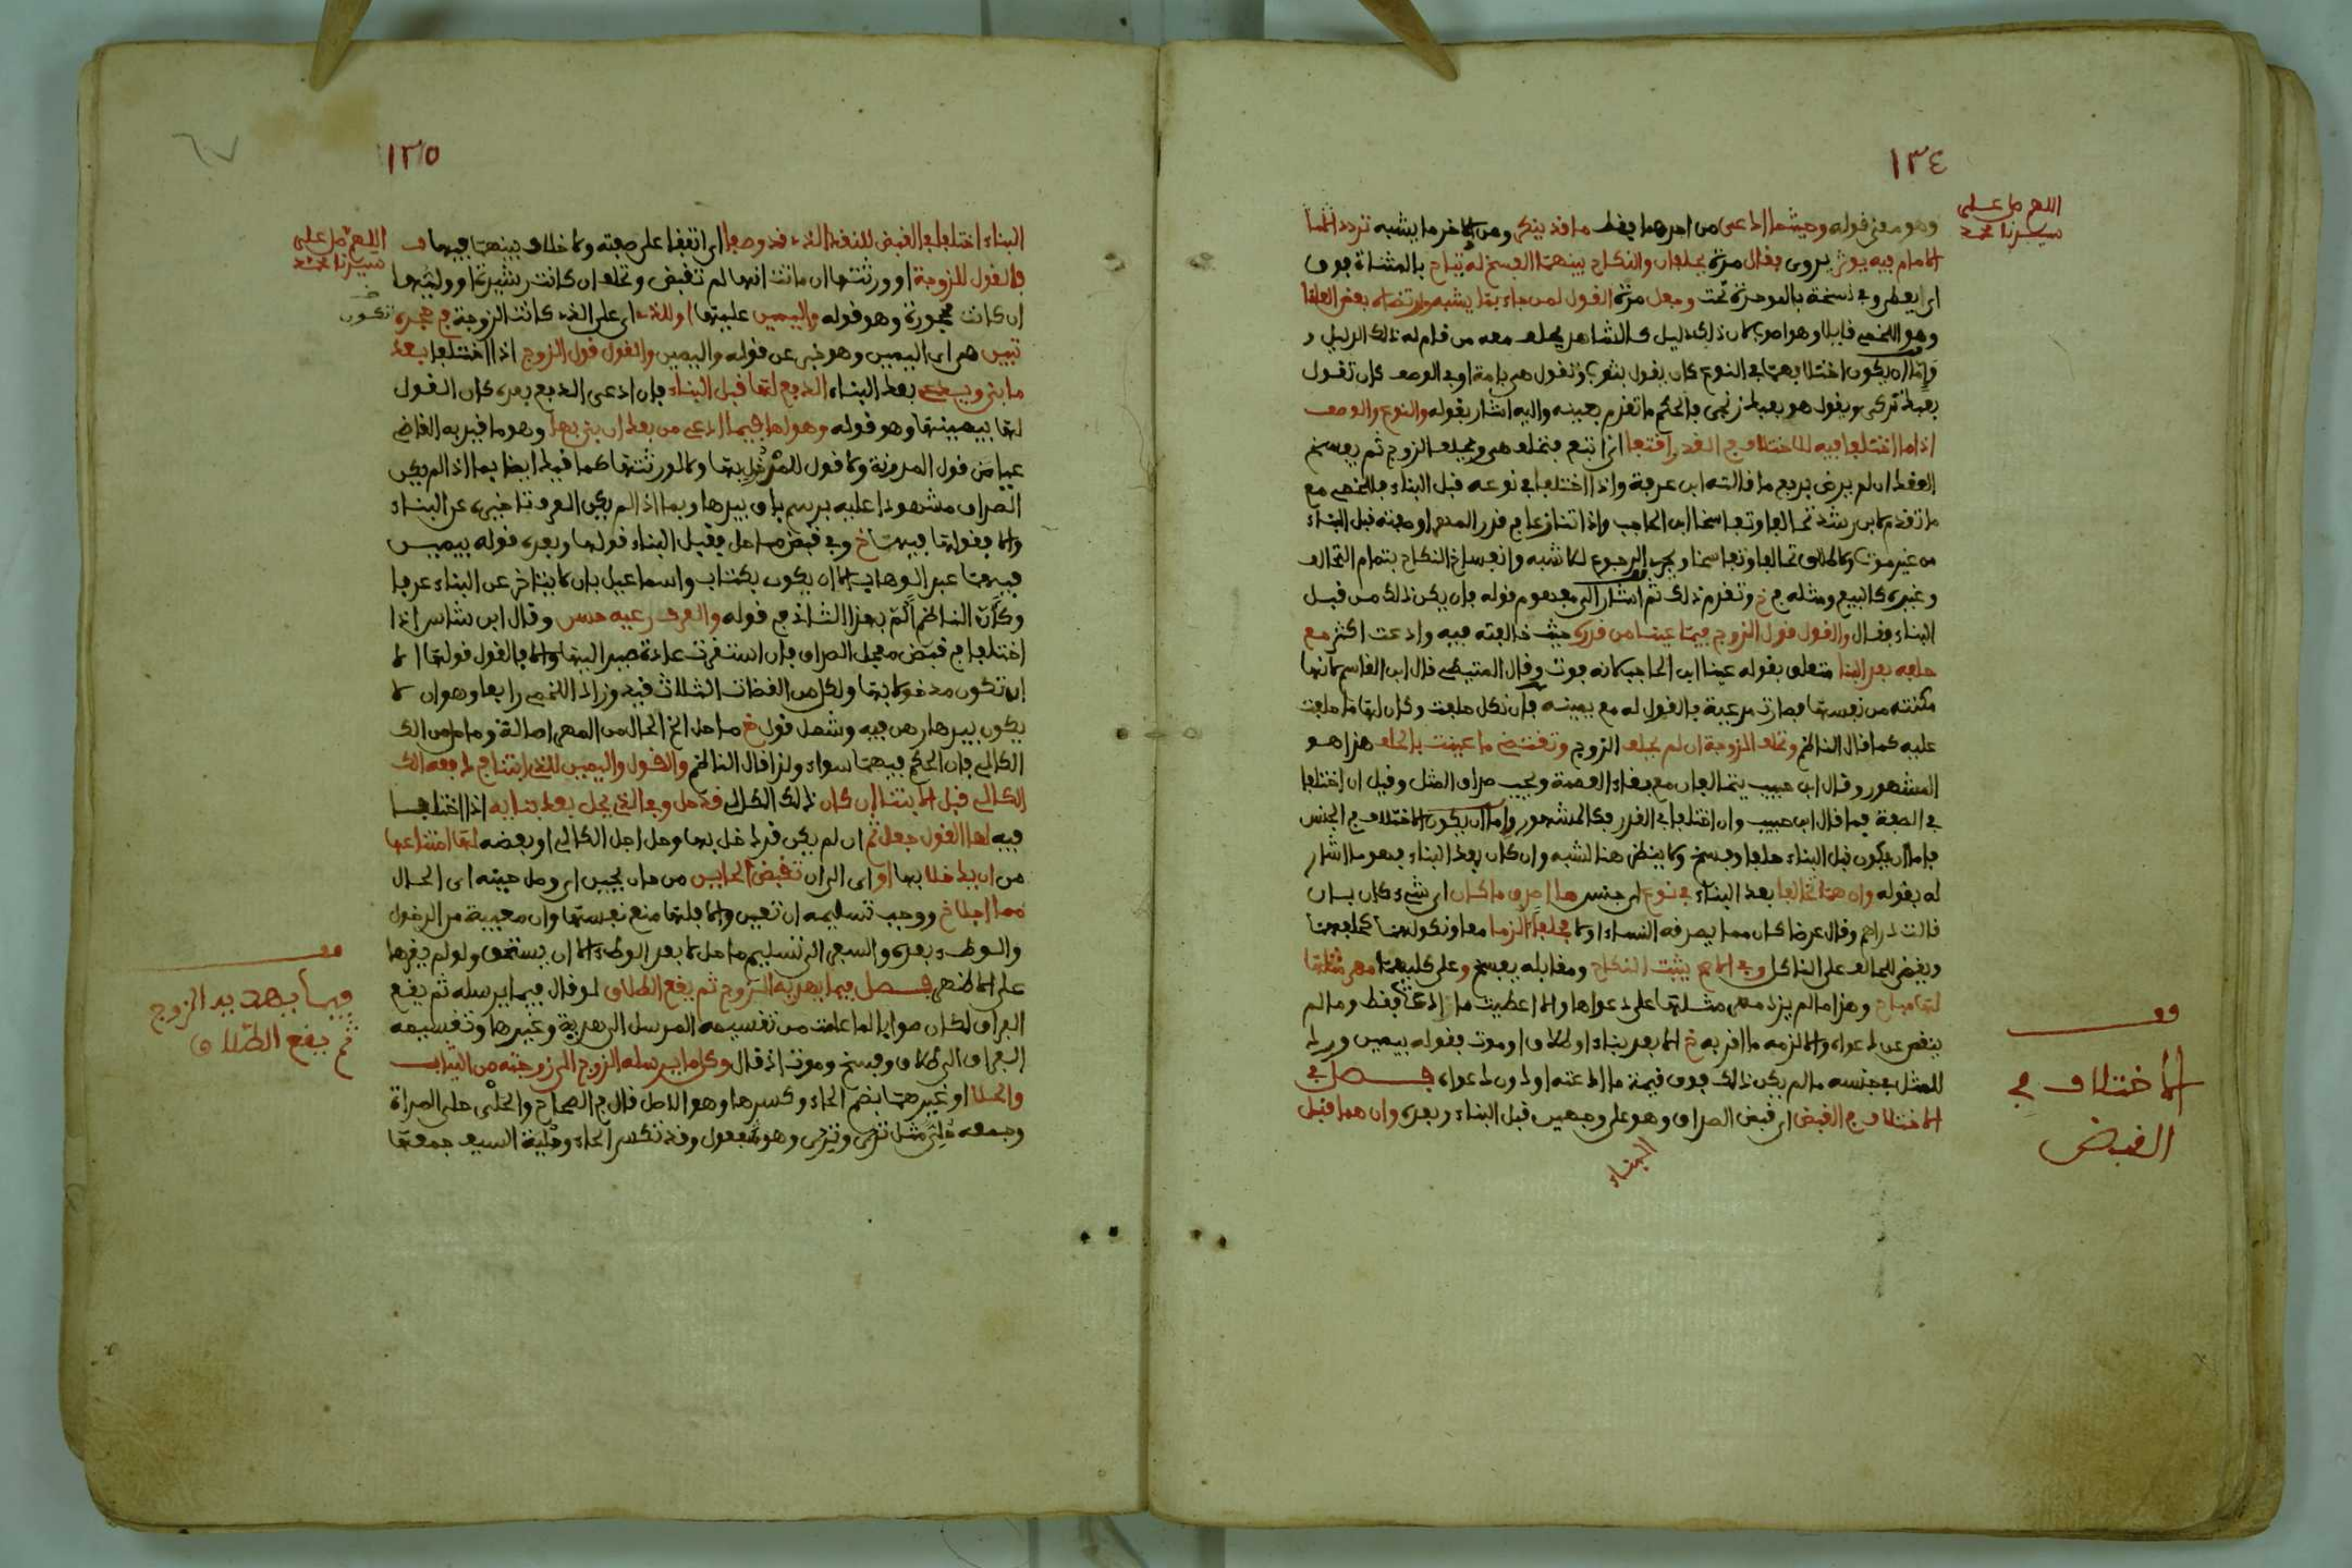 ١٣٤
اللهم صل على
سيدنا محمد
وهو معنى قوله وحيثما ادعى من احدهما يفقد ما قد ينكر ومن الاخر ما يشبه تردد اثما
الامام فيه يوثر يروى فقال مرة يحلفان والنكاح بينهما الفسخ له يتاح بالمثناة فوق
اي يعطى وفي نسخة بالموحدة تحت وجعل مرة القول لمن جاء بما يشبه وارتضاه بعض العلما
وهو اللخمي قايلا وهو اصوب لان ذلك دليل كالشاهد يحلف معه من قام له ذلك الدليل و
واما ان يكون اختلافهما في النوع كان يقول بثوب وتقول هي بامة او في الوصف كان تقول
بعبد تركي ويقول هو بعبد زنجي فالحكم ما تقدم بعينه واليه اشار بقوله والنوع والوصف
اذا ما اختلفا فيه للاختلاف في القدر اقتفا اي اتبع فتحلف هي ويحلف الزوج ثم يفسخ
العقد ان لم يرض بدفع ما قالته ابن عرفة واذا اختلفا في نوعه قبل البناء فاللخمي مع
ما تقدم لابن رشد تحالفا وتفاسخا ابن الحاجب واذا تنازعا في قدر المهر او صفته قبل البناء
من غير موت ولا طلاق تحالفا وتفاسخا ويجري الرجوع للاشبه وانفساخ النكاح بتمام التحالف
وغيره كالبيع ومثله في خ وتقدم ذلك ثم اشار الى مفهوم قوله فان يكن ذلك من قبل
البناء فقال والقول قول الزوج فيما عينا من قدره حيث خالفته فيه وادعت اكثر مع
حلفه بعد البنا متعلق بقوله عينا ابن الحاجب لانه فوت وقال المتيطي قال ابن القاسم لانها
مكنته من نفسها فصارت مدعية فالقول له مع يمينه فان نكل حلفت وكان لها ما حلفت
عليه كما قال الناظم وتحلف الزوجة ان لم يحلف الزوج وتقتضي ما عينت بالحلف هذا هو
المشهور وقال ابن حبيب يتحالفان مع بقاء العصمة ويجب صداق المثل وقيل ان اختلفا
في الصفة فما قال ابن حبيب وان اختلفا في القدر فكالمشهور واما ان يكون الاختلاف في الجنس
فاما ان يكون قبل البناء حلفا وفسخ ولا ينظر هنا لشبه وان كان بعد البناء فهو ما اشار
له بقوله وان هما تحالفا بعد البناء في نوع اي جنس هذا اصدق ما كان اي شيء كان بان
قالت دراهم وقال عرضا كان مما يصدقه النساء او لا فحلفا الزما معا ونكولهما كحلفهما
ويقضى للحالف على الناكل وفي الاصح يثبت النكاح ومقابله يفسخ وعلى كليهما مهر مثلها
لها مباح وهذا ما لم يزد مهر مثلها على دعواها والا اعطيت ما ادعت فقط وما لم
ينقص عن دعواه والا لزمه ما اقر به خ الا بعد بناء او طلاق او موت فقوله بيمين ورد
للمثل في جنسه ما لم يكن ذلك فوق قيمة ما ادعته او دون دعواه فصل في
الاختلاف في القبض اي قبض الصداق وهو على وجهين قبل البناء وبعده وان هما قبل
البناء
قف
الاختلاف في
القبض
١٣٥
اللهم صل على
سيدنا محمد
البناء اختلفا في القبض للنقد الذي قد وصفا اي اتفقا على صفته ولا خلاف بينهما فيها ف
فالقول للزوجة او ورثتها ان ماتت انها لم تقبض وتحلف ان كانت رشيدة او وليها
ان كانت محجورة وهو قوله واليمين عليها او للذي اي على الذي كانت الزوجة في حجره تكون
تبين هي اي اليمين وهو خبر عن قوله واليمين والقول قول الزوج اذا اختلفا بعد
ما بنى ويدعى بعد البناء الدفع لها قبل البناء فان ادعى الدفع بعده كان القول
لها بيمينها وهو قوله وهو لها فيما ادعى من بعد ان بنى بها وهو ما قيد به القاضي
عياض قول المدونة ولا قول للمدخول بها ولا لورثتها كما قيد ايضا بما اذا لم يكن
الصداق مشهودا عليه برسم باق بيدها وبما اذا لم يكن العرف تاخيره عن البناء
والا فقولها فيهما خ وفي قبض ما حل فقبل البناء قولها وبعده قوله بيمين
فيهما عبد الوهاب الا ان يكون بكتاب واسماعيل بان لا يتاخر عن البناء عرفا
وكأن الناظم ألم بهذا الثالث في قوله والعرف رعيه حسن وقال ابن شاس اذا
اختلفا في قبض معجل الصداق فان استقرت عادة صير اليها والا فالقول قولها الا
ان تكون مدخولا بها ولكل من القضاة الثلاث قيد وزاد اللخمي رابعا وهو ان لا
يكون بيدها رهن فيه وشمل قول خ ما حل الخ الحال من المهر اصالة وما حل من الك
الكالي فان الحكم فيهما سواء ولذا قال الناظم والقول واليمين للذي ابتنا في دفعه الك
الكالي قبل الابتنا ان كان ذلك الكالي قد حل وفي الذي يحل بعد بنائه اذا اختلفا
فيه لها القول جعل ثم ان لم يكن قد دخل بها وحل اجل الكالي او بعضه لها امتناعها
من ان يدخلا بها او اي الى ان تقبض الحاين من حان يحين اي وصل حينه اي الحال
مما اجلا خ ووجب تسليمه ان تعين والا فلها منع نفسها وان معيبة من الدخول
والوطء بعده والسفر الى تسليم ما حل لا بعد الوطء الا ان يستحق ولو لم يغرها
على الاظهر فصل فيما يهديه الزوج ثم يقع الطلاق لو قال فيما يرسله ثم يقع
الفراق لكان صوابا لما علمت من تقسيمه المرسل الى هدية وغيرها وتقسيمه
الفراق الى طلاق وفسخ وموت اذ قال وكل ما يرسله الزوج الى زوجته من الثياب
والحلا او غيرهما بضم الحاء وكسرها وهو الاصل قال في الصحاح والحلي حلي المرأة
وجمعه حلي مثل ثدي وثدي وهو فعول وقد تكسر الحاء وحلية السيف جمعها
قف
فيما يهديه الزوج
ثم يقع الطلاق